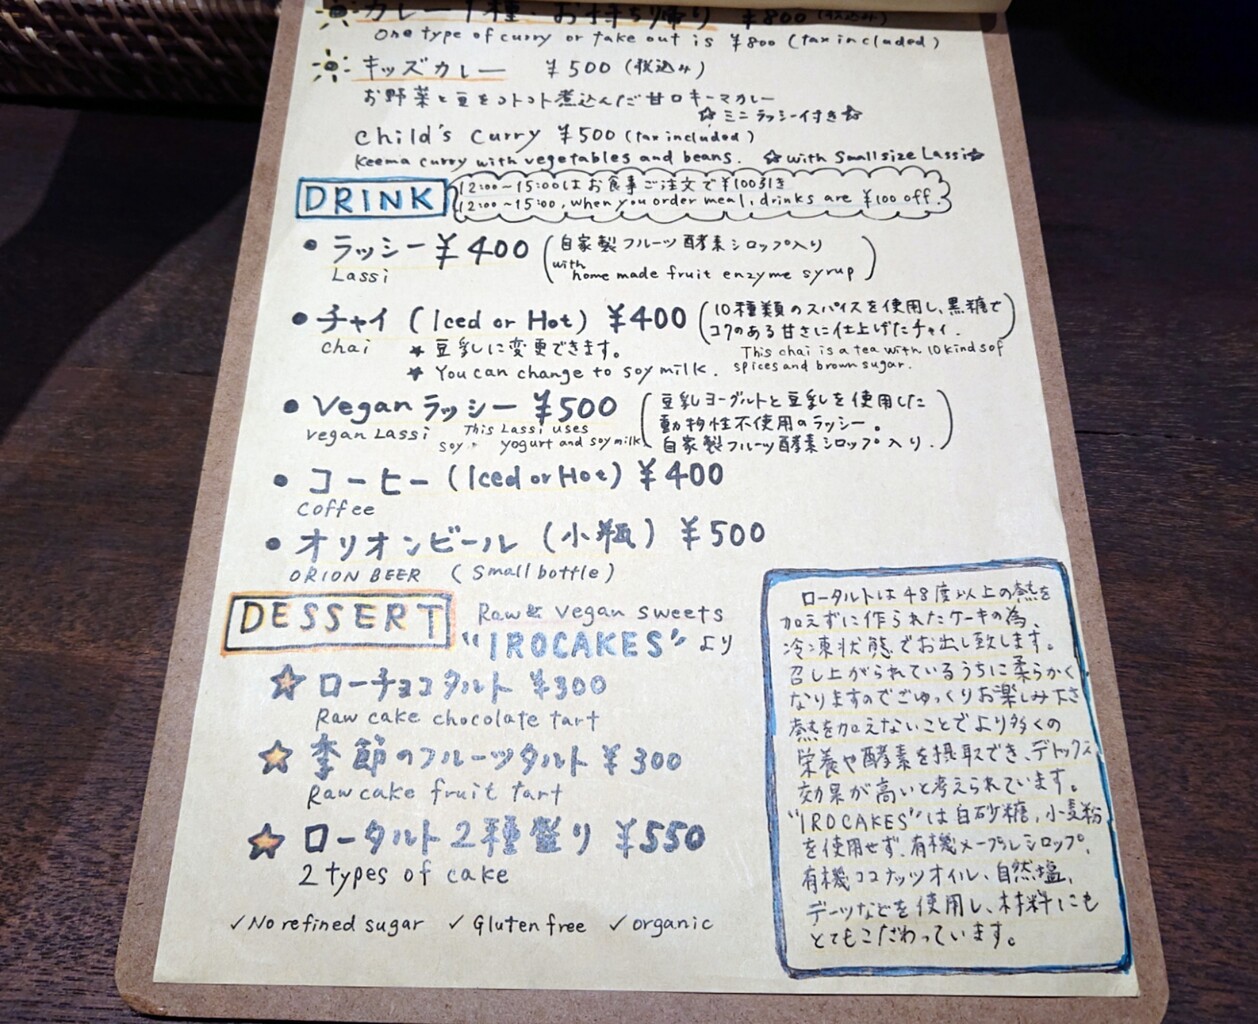 カレー1種・お持ち帰り ¥800 (税込み)
One type of curry or take out is ¥800 (tax included)
キッズカレー ¥500 (税込み)
お野菜と豆をコトコト煮込んだ甘口キーマカレー
☆ミニラッシー付き☆
child's curry ¥500 (tax included)
Keema curry with vegetables and beans. ☆with Small size Lassi☆
DRINK
12:00~15:00はお食事ご注文で¥100引き
12:00~15:00, when you order meal, drinks are ¥100 off.
• ラッシー ¥400 (自家製フルーツ酵素シロップ入り
Lassi with home made fruit enzyme syrup)
• チャイ (Iced or Hot) ¥400 (10種類のスパイスを使用し、黒糖で
コクのある甘さに仕上げたチャイ.)
chai ★ 豆乳に変更できます。 This chai is a tea with 10 kinds of
★ You can change to soy milk. spices and brown sugar.
• Vegan ラッシー ¥500 (豆乳ヨーグルトと豆乳を使用した
vegan Lassi This Lassi uses 動物性不使用のラッシー。
soy・ yogurt and soy milk 自家製フルーツ酵素シロップ入り.)
• コーヒー (Iced or Hot) ¥400
coffee
• オリオンビール (小瓶) ¥500
ORION BEER (Small bottle)
DESSERT Raw & Vegan sweets
"IROCAKES" より
☆ ローチョコタルト ¥300
Raw cake chocolate tart
☆ 季節のフルーツタルト ¥300
Raw cake fruit tart
☆ ロータルト2種盛り ¥550
2 types of cake
✓No refined sugar ✓Gluten free ✓organic
ロータルトは48度以上の熱を
加えずに作られたケーキの為、
冷凍状態でお出し致します。
召し上がられているうちに柔らかく
なりますのでごゆっくりお楽しみ下さ
熱を加えないことでより多くの
栄養や酵素を摂取でき、デトックス
効果が高いと考えられています。
"IROCAKES"は白砂糖、小麦粉
を使用せず、有機メープルシロップ、
有機ココナッツオイル、自然塩、
デーツなどを使用し、材料にも
とてもこだわっています。